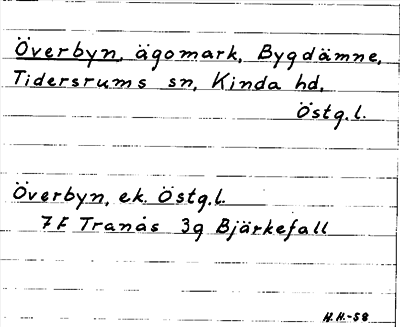 Överbyn, ägomark, Bygdämne,
Tidersrums sn, Kinda hd,
Östg.l.
Överbyn, ek. Östg.l.
7F Tranås 3g Bjärkefall
H.H.-58